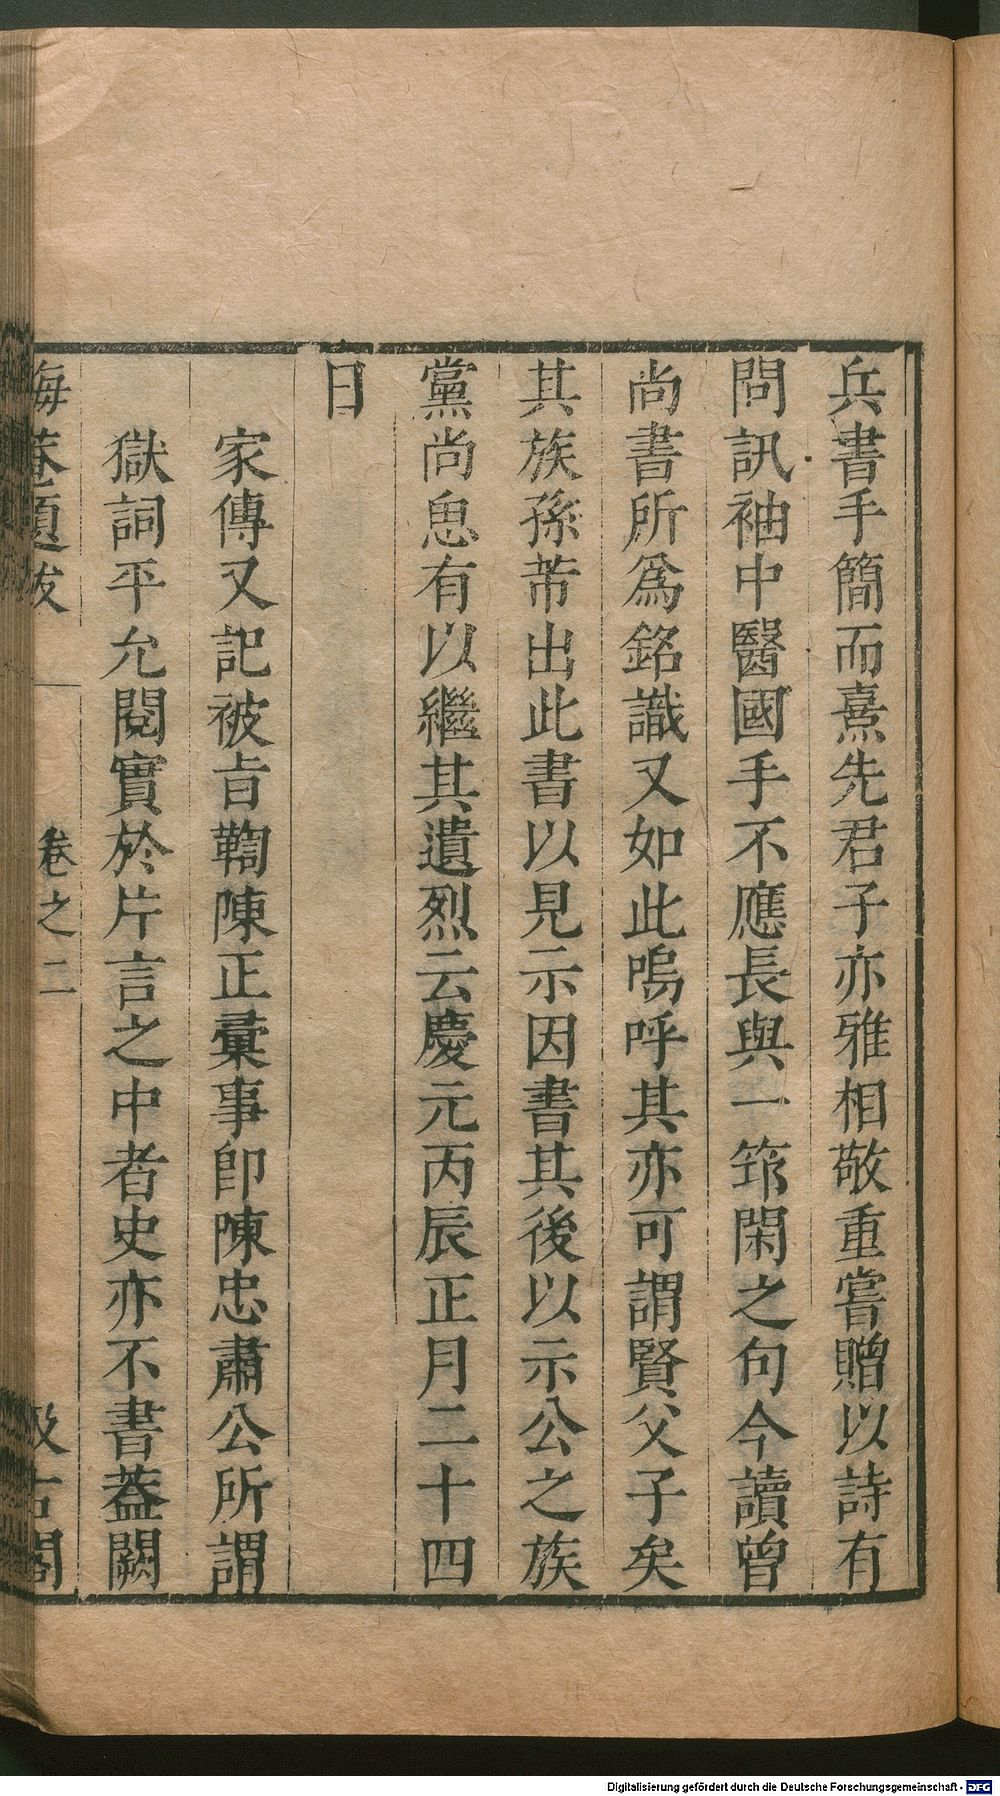 兵書手簡而熹先君子亦雅相敬重嘗贈以詩有
問訊袖中醫國手不應長與一筇閑之句今讀曾
尚書所爲銘識又如此嗚呼其亦可謂賢父子矣
其族孫芾出此書以見示因書其後以示公之族
黨尚思有以繼其遺烈云慶元丙辰正月二十四
日
家傳又記被旨鞫陳正彙事卽陳忠肅公所謂
獄詞平允閱實於片言之中者史亦不書葢闕
海菴題跋
卷之二
汲古閣
Digitalisierung gefördert durch die Deutsche Forschungsgemeinschaft - DFG